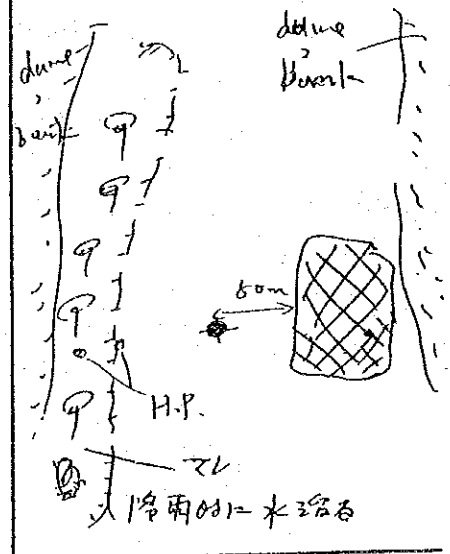 dune
bank
dune
Bank
50m
H.P.
マレ
降雨时に水溜る